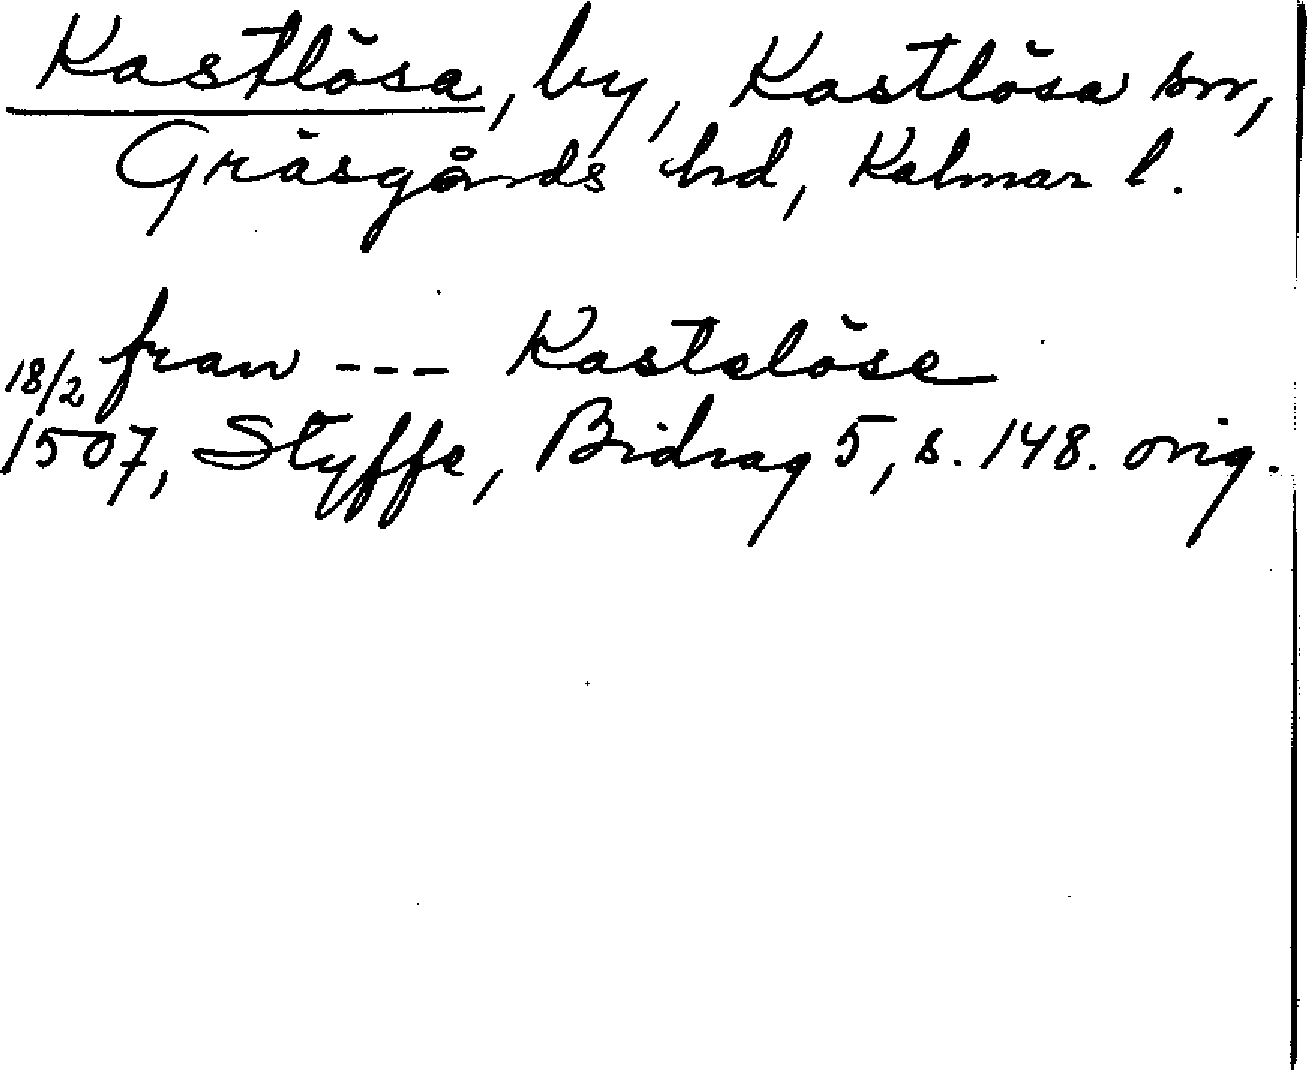 Kastlösa, by, Kastlösa sn,
Gräsgårds hd, Kalmar l.
fran --- Kastelöse
18/2 1507, Styffe, Bidrag 5, s. 148. orig.